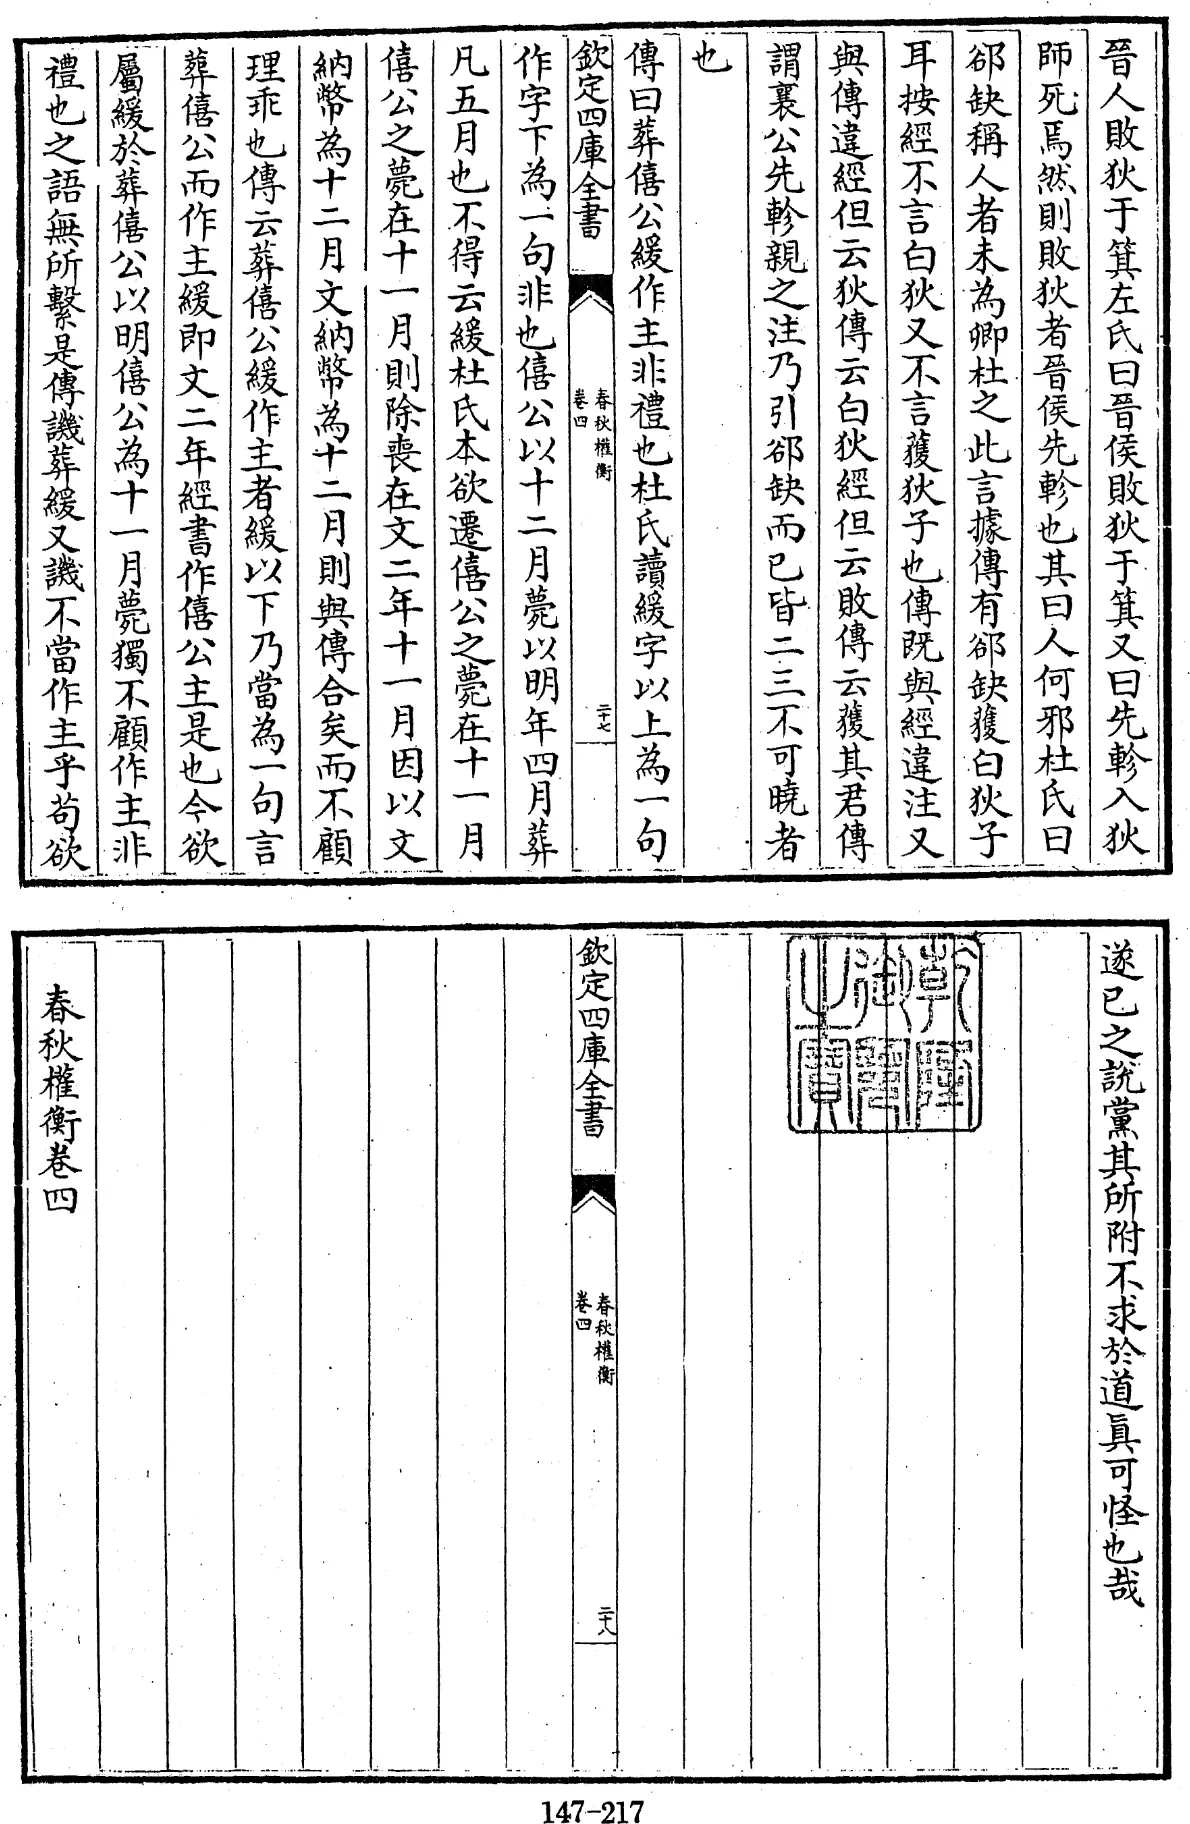 晉人敗狄于箕左氏曰晉侯敗狄于箕又曰先軫入狄
師死焉然則敗狄者晉侯先軫也其曰人何邪杜氏曰
郤缺稱人者未為卿杜之此言據傳有郤缺獲白狄子
耳按經不言白狄又不言獲狄子也傳既與經違注又
與傳違經但云狄傳云白狄經但云敗傳云獲其君傳
謂襄公先軫親之注乃引郤缺而已皆二三不可曉者
也
傳曰葬僖公緩作主非禮也杜氏讀緩字以上為一句
欽定四庫全書
春秋權衡
卷四
二十七
作字下為一句非也僖公以十二月薨以明年四月葬
凡五月也不得云緩杜氏本欲遷僖公之薨在十一月
僖公之薨在十一月則除喪在文二年十一月因以文
納幣為十二月文納幣為十二月則與傳合矣而不顧
理乖也傳云葬僖公緩作主者緩以下乃當為一句言
葬僖公而作主緩即文二年經書作僖公主是也今欲
屬緩於葬僖公以明僖公為十一月薨獨不顧作主非
禮也之語無所繫是傳譏葬緩又譏不當作主乎茍欲
遂已之說黨其所附不求於道真可怪也哉
乾隆
御覽
之寶
欽定四庫全書
春秋權衡
卷四
二十八
春秋權衡卷四
147-217